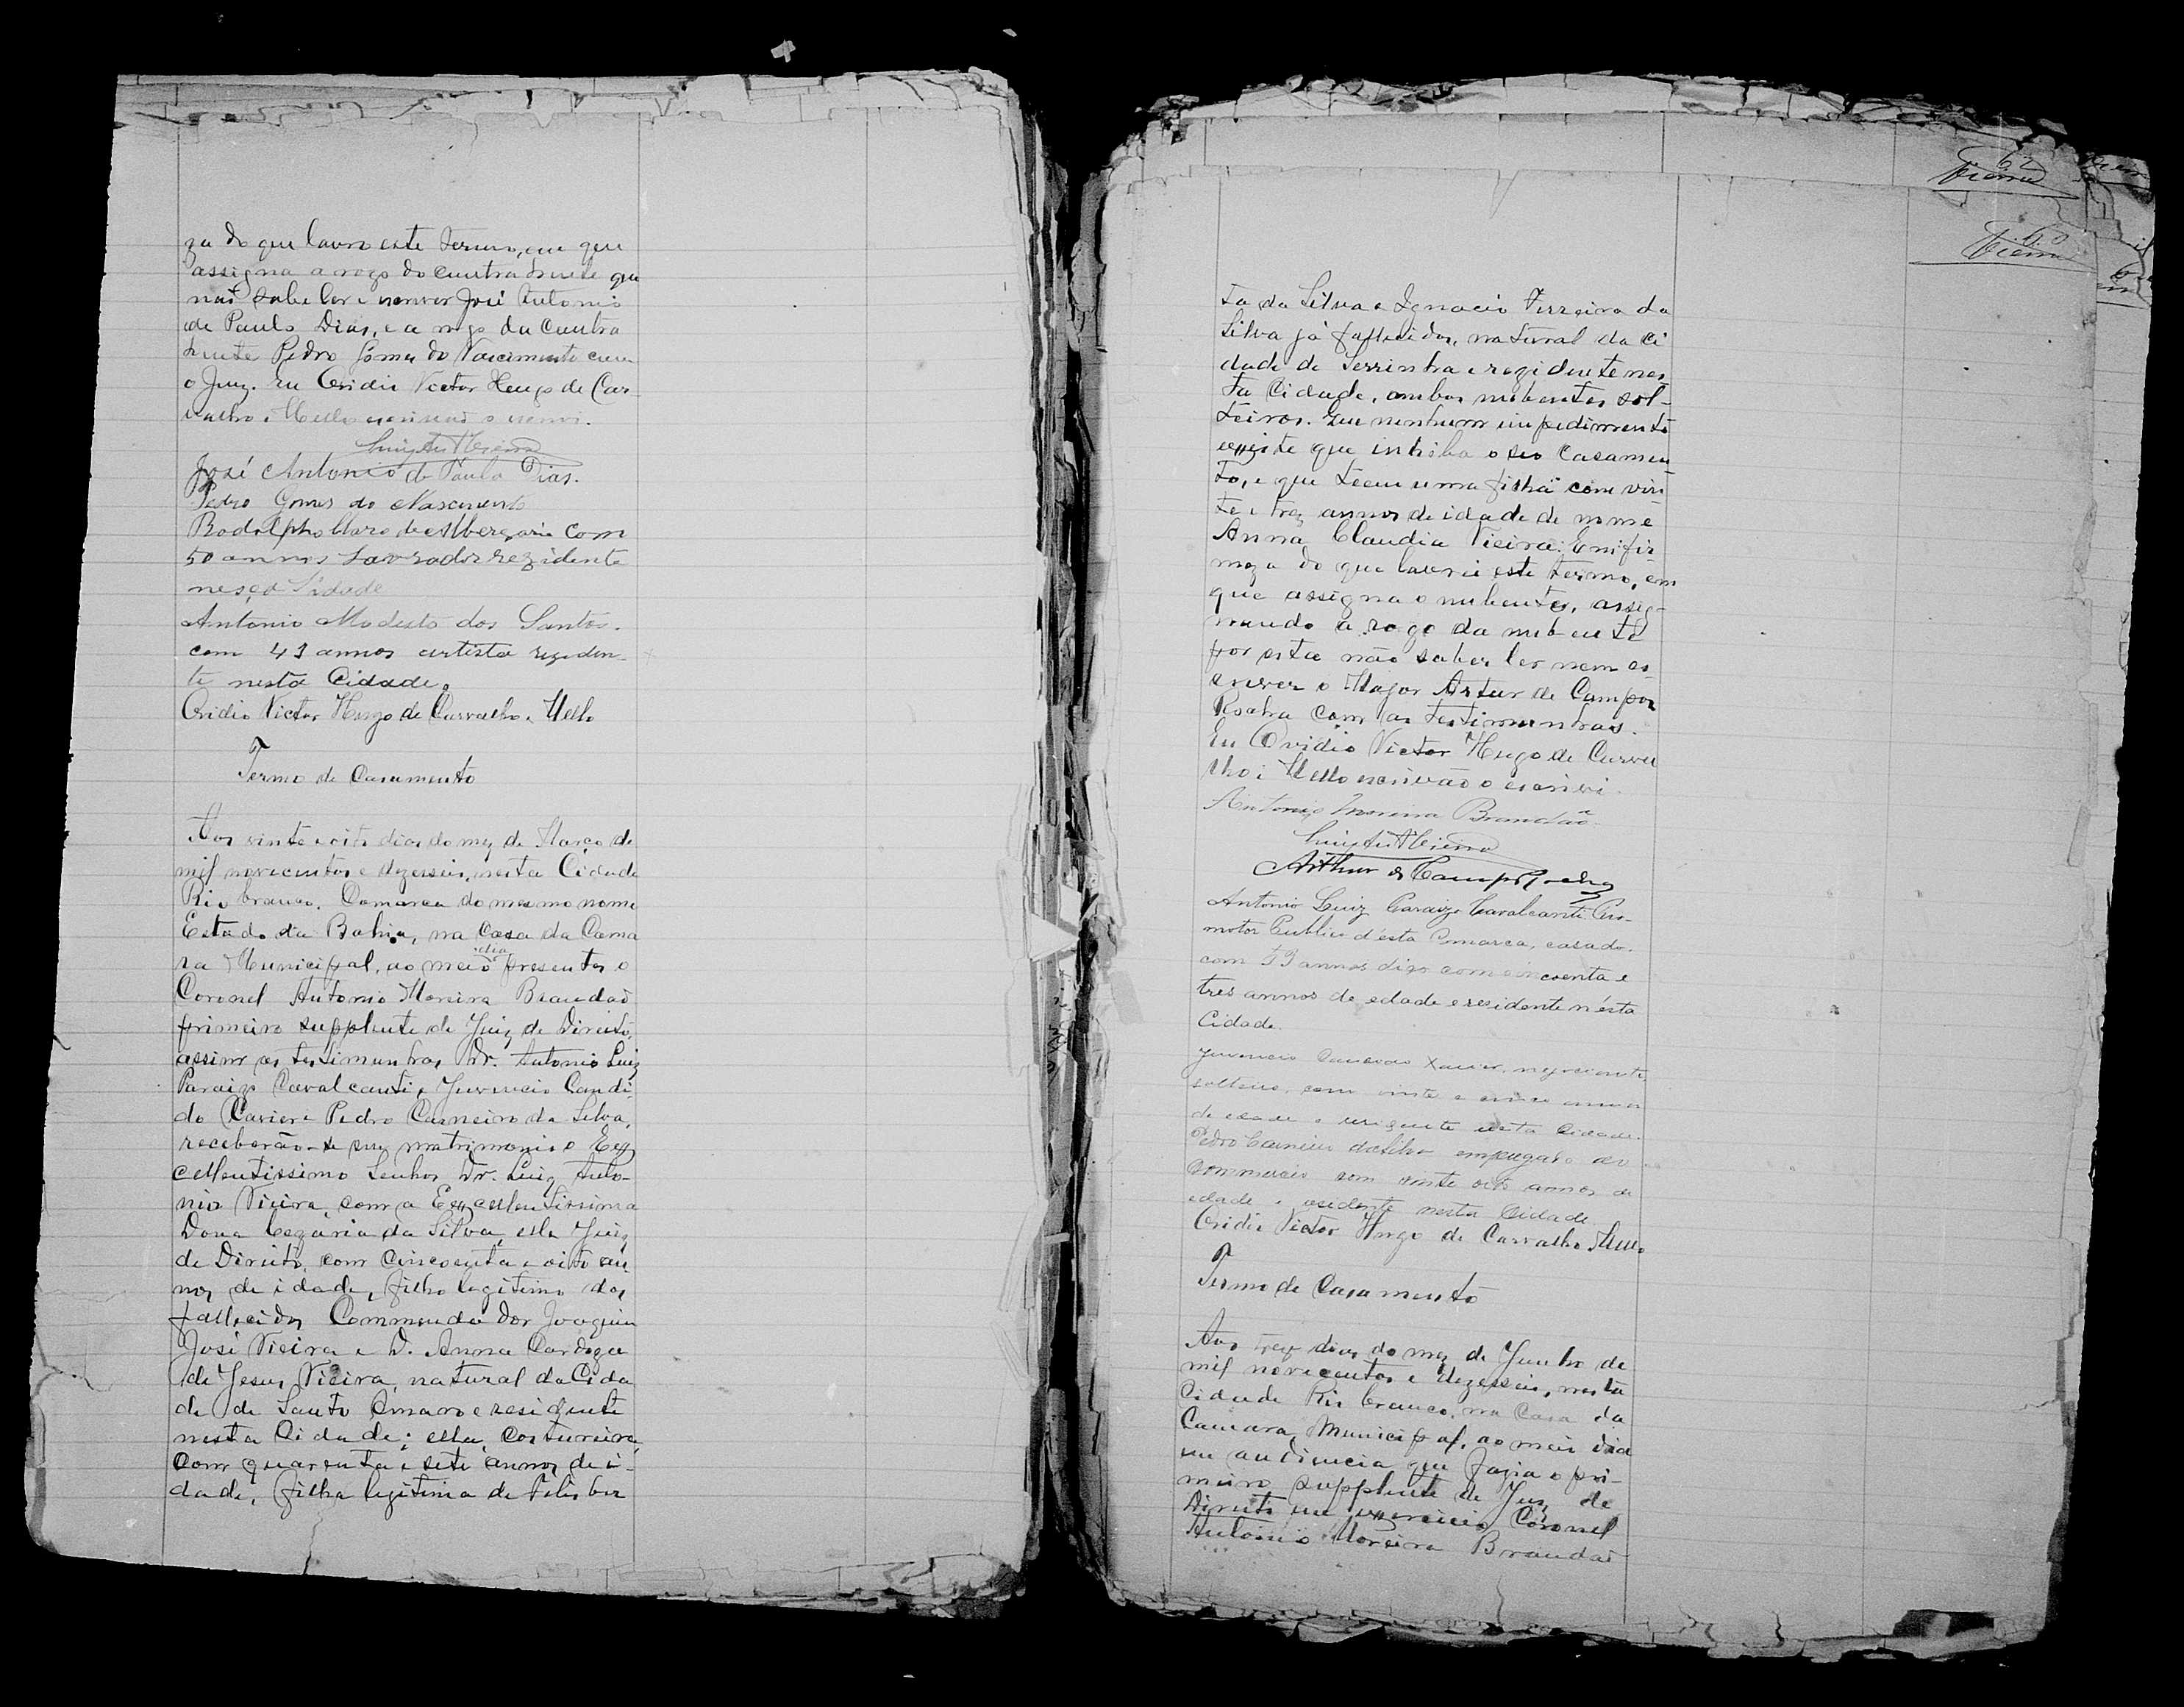 za do que lavro este termo, em que
assigna a rogo do contrahente que
não sabe ler e escrever José Antonio
de Paulo Dias, e a rogo da contra
hente Pedro Gomes do Nascimento com
o Juiz. Eu Ovidio Victor Hugo de Car
valho e Mello escrivão o escrevi.
Luiz Anto Vieira
José Antonio de Paulo Dias.
Pedro Gomes do Nascimento
Rodolpho Claro de Albergaria com
50 annos Lavrador rezidente
nesça Sidade
Antonio Modesto dos Santos.
com 43 annos artista reziden-
te nesta Cidade.
Ovidio Victor Hugo de Carvalho e Mello
Termo de Casamento
Aos vinte e oito dias do mez de Março de
mil novecentos e dezesseis, nesta Cidade
Rio branco, Comarca do mesmo nome
Estado da Bahia, na Casa da Cama
ra Municipal, ao meio dia presentes o
Coronel Antonio Moreira Brandão
primeiro supplente de Juiz de Direito,
assim as testimunhas Dr. Antonio Luiz
Paraizo Cavalcanti, Juvencio Candi-
do Cavier e Pedro Carneiro da Silva,
receberão-se em matrimonio o Ex
cellentissimo Senhor Dr. Luiz Anto-
nio Vieira, com a Excellentissima
Dona Cezaria da Silva, elle Juiz
de Direito, com cincoenta e oito an
nos de idade, filho legitimo dos
fallecidos Commendador Joaquim
José Vieira e D. Anna Cardoza
de Jesus Vieira, natural da Cida
de de Santo Amaro e residente
nesta Cidade; ella, costureira,
com quarenta e sete annos de i-
dade, filha legitima de Felisber
62
Vieira
60
Vieira
ta da Silva e Ignacio Ferreira da
Silva já fallecidos, natural da Ci
dade de Serrinha e rezidente nes
ta Cidade, ambos nubentes sol-
teiros. Que nenhum impedimento
existe que inhiba o seo casamen
to, e que teem uma filha com vin
te e trez annos de idade de nome
Anna Claudia Vieira. Em fir
meza do que lavrei este termo, em
que assigna o nubente, assig-
nando a rogo da nubente
por esta não saber ler nem es
crever o Major Artur de Campos
Rocha com as testimunhas.
Eu Ovidio Victor Hugo de Carva
lho e Mello escrivão o escrivi.
Antonio Moreira Brandão
Luiz Anto Vieira
Arthur de Campos Rocha
Antonio Luiz Paraizo Cavalcanti Pro-
motor Publico d'esta Comarca, casado.
com 53 annos digo com cincoenta e
tres annos de edade e residente n'esta
Cidade.
Juvencio Candido Xavier, negociante,
solteiro, com vinte e cinco annos
de edade e residente nesta Cidade.
Pedro Carneiro da Silva empregado no
commercio com vinte oito annos de
edade e residente nesta Cidade
Ovidio Victor Hugo de Carvalho Mello
Termo de Casamento
Aos trez dias do mez de Junho de
mil novecentos e dezesseis, nesta
Cidade Rio branco, na Casa da
Camara Municipal, ao meio dia
em audiencia que fazia o pri-
meiro supplente de Juiz de
Direito em exercicio Coronel
Antonio Moreira Brandão